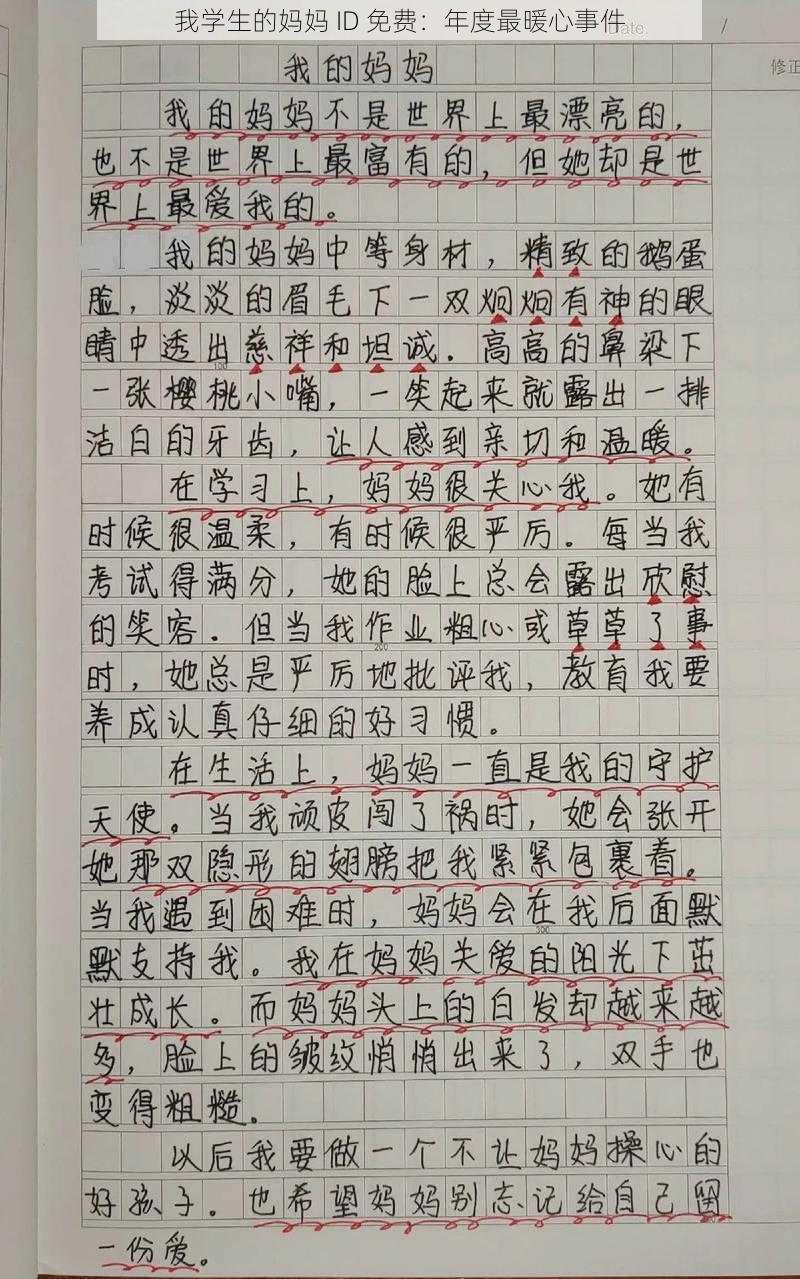 我学生的妈妈 ID 免费：年度最暖心事件
Date.
/
修正
我的妈妈
我的妈妈不是世界上最漂亮的，
也不是世界上最富有的，但她却是世
界上最爱我的。
我的妈妈中等身材，精致的鹅蛋
脸，淡淡的眉毛下一双炯炯有神的眼
睛中透出慈祥和坦诚。高高的鼻梁下
100
一张樱桃小嘴，一笑起来就露出一排
洁白的牙齿，让人感到亲切和温暖。
在学习上，妈妈很关心我。她有
时候很温柔，有时候很严厉。每当我
考试得满分，她的脸上总会露出欣慰
的笑容。但当我作业粗心或草草了事
200
时，她总是严厉地批评我，教育我要
养成认真仔细的好习惯。
在生活上，妈妈一直是我的守护
天使。当我顽皮闯了祸时，她会张开
她那双隐形的翅膀把我紧紧包裹着。
当我遇到困难时，妈妈会在我后面默
300
默支持我。我在妈妈关爱的阳光下茁
壮成长。而妈妈头上的白发却越来越
多，脸上的皱纹悄悄出来了，双手也
变得粗糙。
以后我要做一个不让妈妈操心的
好孩子。也希望妈妈别忘记给自己留
一份爱。